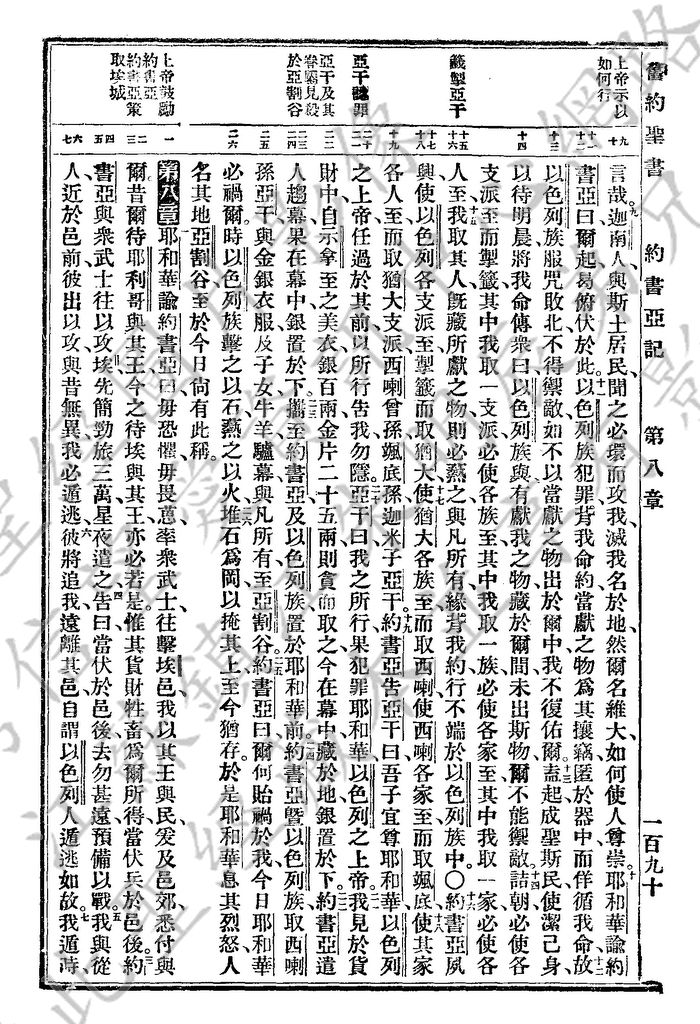 舊約聖書 約書亞記 第八章 一百九十
上帝示以
如何行
九 十
十一
十二
十三
十四
十五
十六
十七
十八
十九
二十
二一
二二
二三
二四
二五
二六
一
二
三
四
五
六
七
籤掣亞干
亞干認罪
亞干及其
眷屬見殺
於亞割谷
上帝鼓勵
約書亞
約書亞策
取埃城
言哉迦南人與斯土居民聞之必環而攻我滅我名於地然爾名維大如何使人尊崇耶和華諭約
書亞曰爾起曷俯伏於此以色列族犯罪背我命約當獻之物爲其攘竊匿於器中而佯循我命故
以色列族服咒敗北不得禦敵如不以當獻之物出於爾中我不復佑爾蓋起成聖斯民使潔己身
以待明晨將我命傳衆曰以色列族與有獻我之物藏於爾間未出斯物爾不能禦敵詰朝必使各
支派至而掣籤其中我取一支派必使各族至其中我取一族必使各家至其中我取一家必使各
人至我取其人旣藏所獻之物則必燬之與凡所有緣背我約行不端於以色列族中〇約書亞夙
興使以色列各支派至掣籤而取猶大使猶大各族至而取西喇使西喇各家至而取颯底使其家
各人至而取猶大支派西喇曾孫颯底孫迦米子亞干約書亞告亞干曰吾子宜尊耶和華以色列
之上帝任過於其前以所行告我勿隱亞干曰我之所行果犯罪耶和華以色列之上帝我見於貨
財中自示拿至之美衣銀百兩金片二十五兩則貪而取之今在幕中藏於地銀置於下約書亞遣
人趨幕果在幕中銀置於下攜至約書亞及以色列族置於耶和華前約書亞曁以色列族取西喇
孫亞干與金銀衣服及子女牛羊驢幕與凡所有至亞割谷約書亞曰爾何貽禍於我今日耶和華
必禍爾時以色列族擊之以石燬之以火堆石爲岡以掩其上至今猶存於是耶和華息其烈怒人
名其地亞割谷至於今日尙有此稱
第八章 耶和華諭約書亞曰毋恐懼毋畏葸率衆武士往擊埃邑我以其王與民爰及邑郊悉付與
爾昔爾待耶利哥與其王今之待埃與其王亦必若是惟其貨財牲畜爲爾所得當伏兵於邑後約
書亞與衆武士往以攻埃先簡勁旅三萬星夜遣之告曰當伏於邑後去勿甚遠預備以戰我與從
人近於邑前彼出以攻與昔無異我必遁逃彼將追我遠離其邑自謂以色列人遁逃如故我遁時